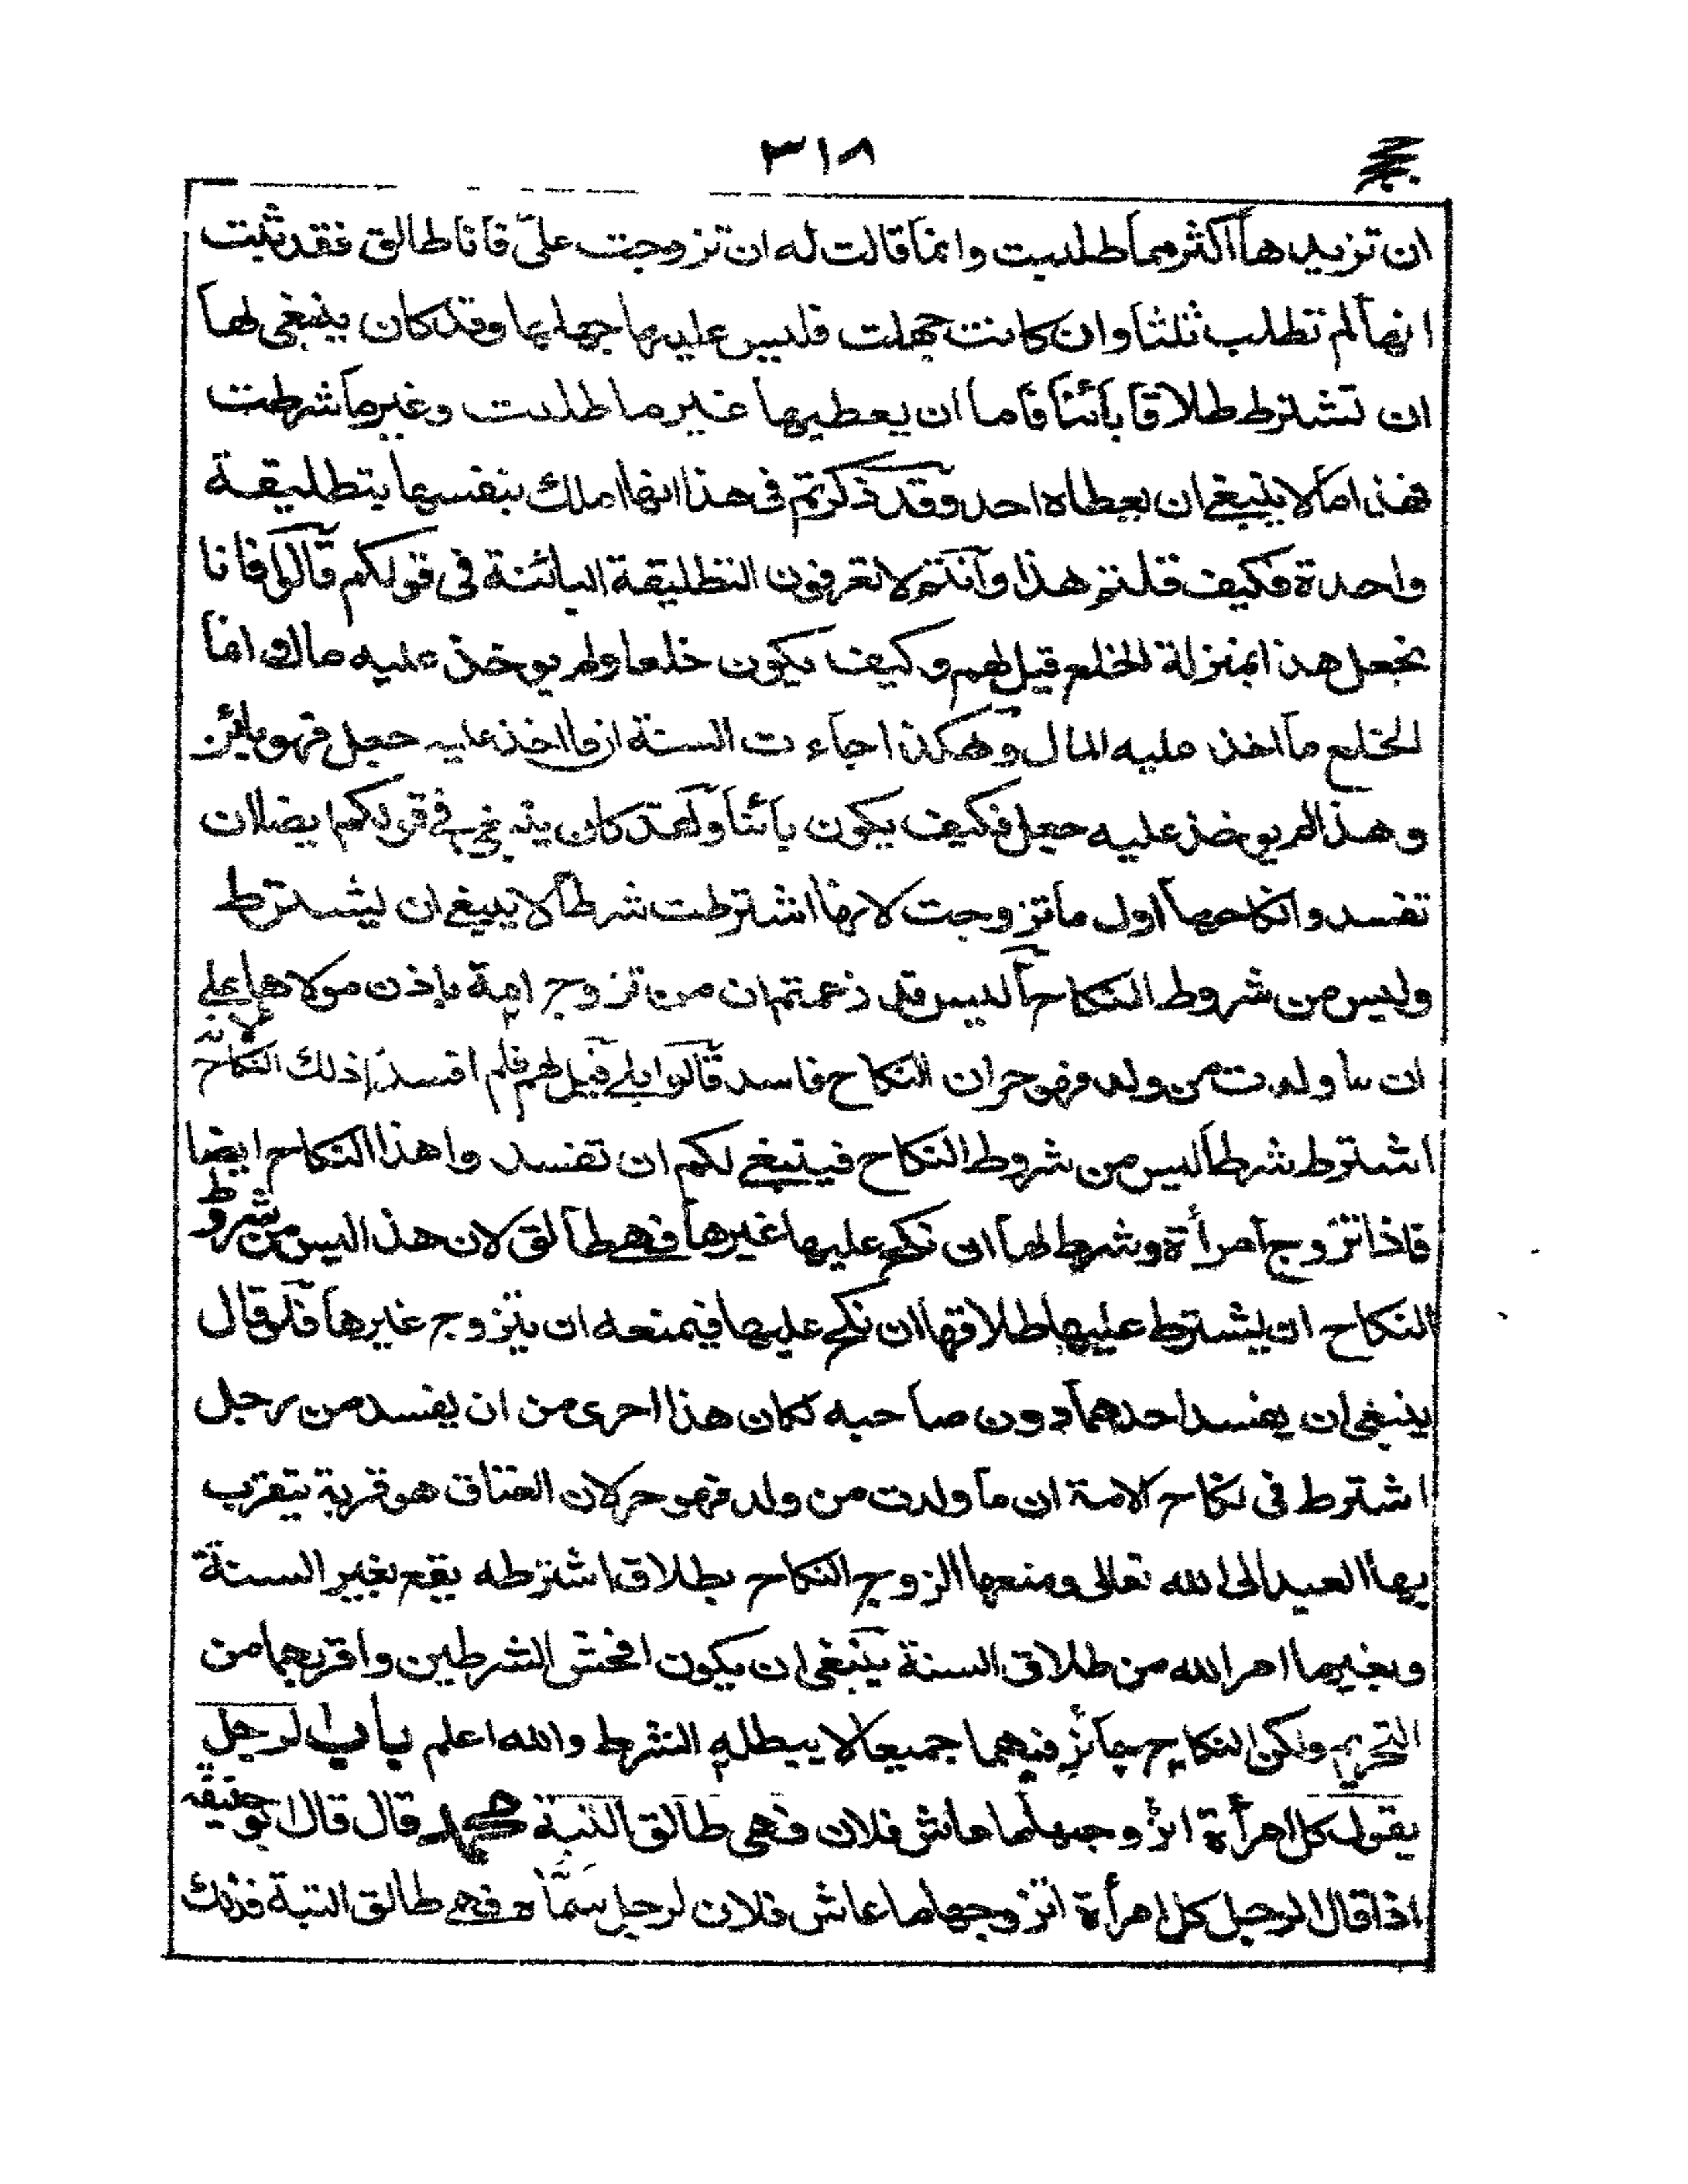 ٣١٨
ان تزيدها أكثر مما طلبت وانما قالت له ان تزوجت علىّ فانا طالق فقد ثبت
انها لم تطلب ثلثا وان كانت جهلت فليس عليها جهلها وقد كان ينبغي لها
ان تشترط طلاقا بائنا فاما ان يعطيها غير ما طلبت وغير ما شرطت
فهذا مالا ينبغي ان يعطاه احد وقد ذكرتم في هذا انها املك بنفسها بتطليقة
واحدة فكيف قلتم هذا وانتم لا تعرفون التطليقة البائنة في قولكم قالوا فانا
نجعل هذا بمنزلة الخلع قيل لهم وكيف يكون خلعا ولم يوخذ عليه مال وانما
الخلع ما اخذ عليه المال وهكذا جاءت السنة ان ما اخذ عليه جعل فهو بائن
وهذا لم يوخذ عليه جعل فكيف يكون بائنا ولقد كان ينبغي في قولكم ايضا ان
تفسدوا نكاحها اول ما تزوجت لانها اشترطت شرطا لا ينبغي ان يشترط
وليس من شروط النكاح أليس قد زعمتم ان من تزوج امة باذن مولاها على
ان ما ولدت من ولد فهو حر ان النكاح فاسد قالوا بلى قيل لهم فلم افسد ذلك النكاح لانه
اشترط شرطا ليس من شروط النكاح فينبغي لكم ان تفسدوا هذا النكاح ايضا
فاذا تزوج امرأة وشرط لها ان نكح عليها غيرها فهي طالق لان هذا ليس من شروط
النكاح ان يشترط عليها طلاقها ان نكح عليها فيمنعه ان يتزوج غيرها فلو قال
ينبغي ان يفسد احدهما دون صاحبه لكان هذا احرى من ان يفسد من رجل
اشترط في نكاح الامة ان ما ولدت من ولد فهو حر لان العتاق هو قربة يتقرب
بها العبد الى الله تعالى ومنعها الزوج النكاح بطلاق اشترطه يقع بغير السنة
وبغير ما امر الله من طلاق السنة ينبغي ان يكون افحش الشرطين واقربهما من
التحريم ولكن النكاح جائز فيهما جميعا لا يبطله الشرط والله اعلم باب الرجل
يقول كل امرأة اتزوجها ما عاش فلان فهي طالق البتة محمد قال قال ابو حنيفه
اذا قال الرجل كل امرأة اتزوجها ما عاش فلان لرجل سمّاه فهي طالق البتة فذلك